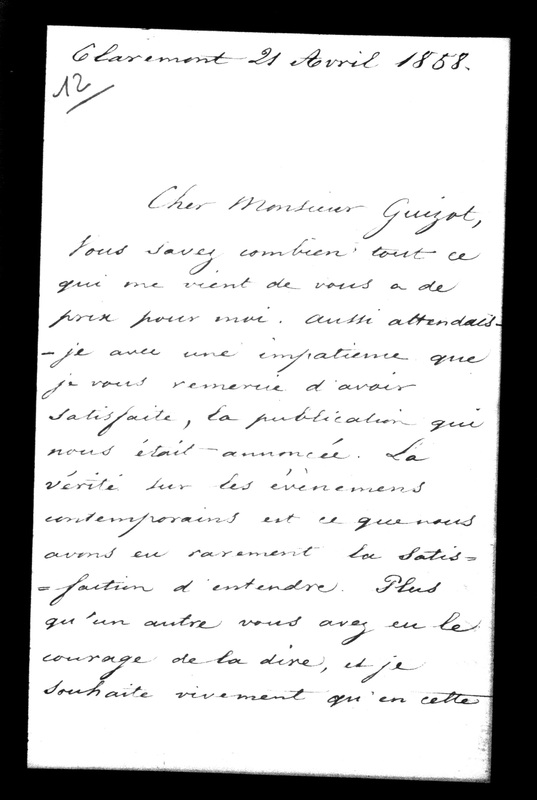 Claremont 21 Avril 1858.
12
Cher Monsieur Guizot,
Vous savez combien tout ce
qui me vient de vous a de
prix pour moi. Aussi attendais-
-je avec une impatience que
je vous remercie d'avoir
satisfaite, la publication qui
nous était annoncée. La
vérité sur les évènemens
contemporains est ce que nous
avons eu rarement la satis=
=faction d'entendre. Plus
qu'un autre vous avez eu le
courage de la dire, et je
souhaite vivement qu'en cette